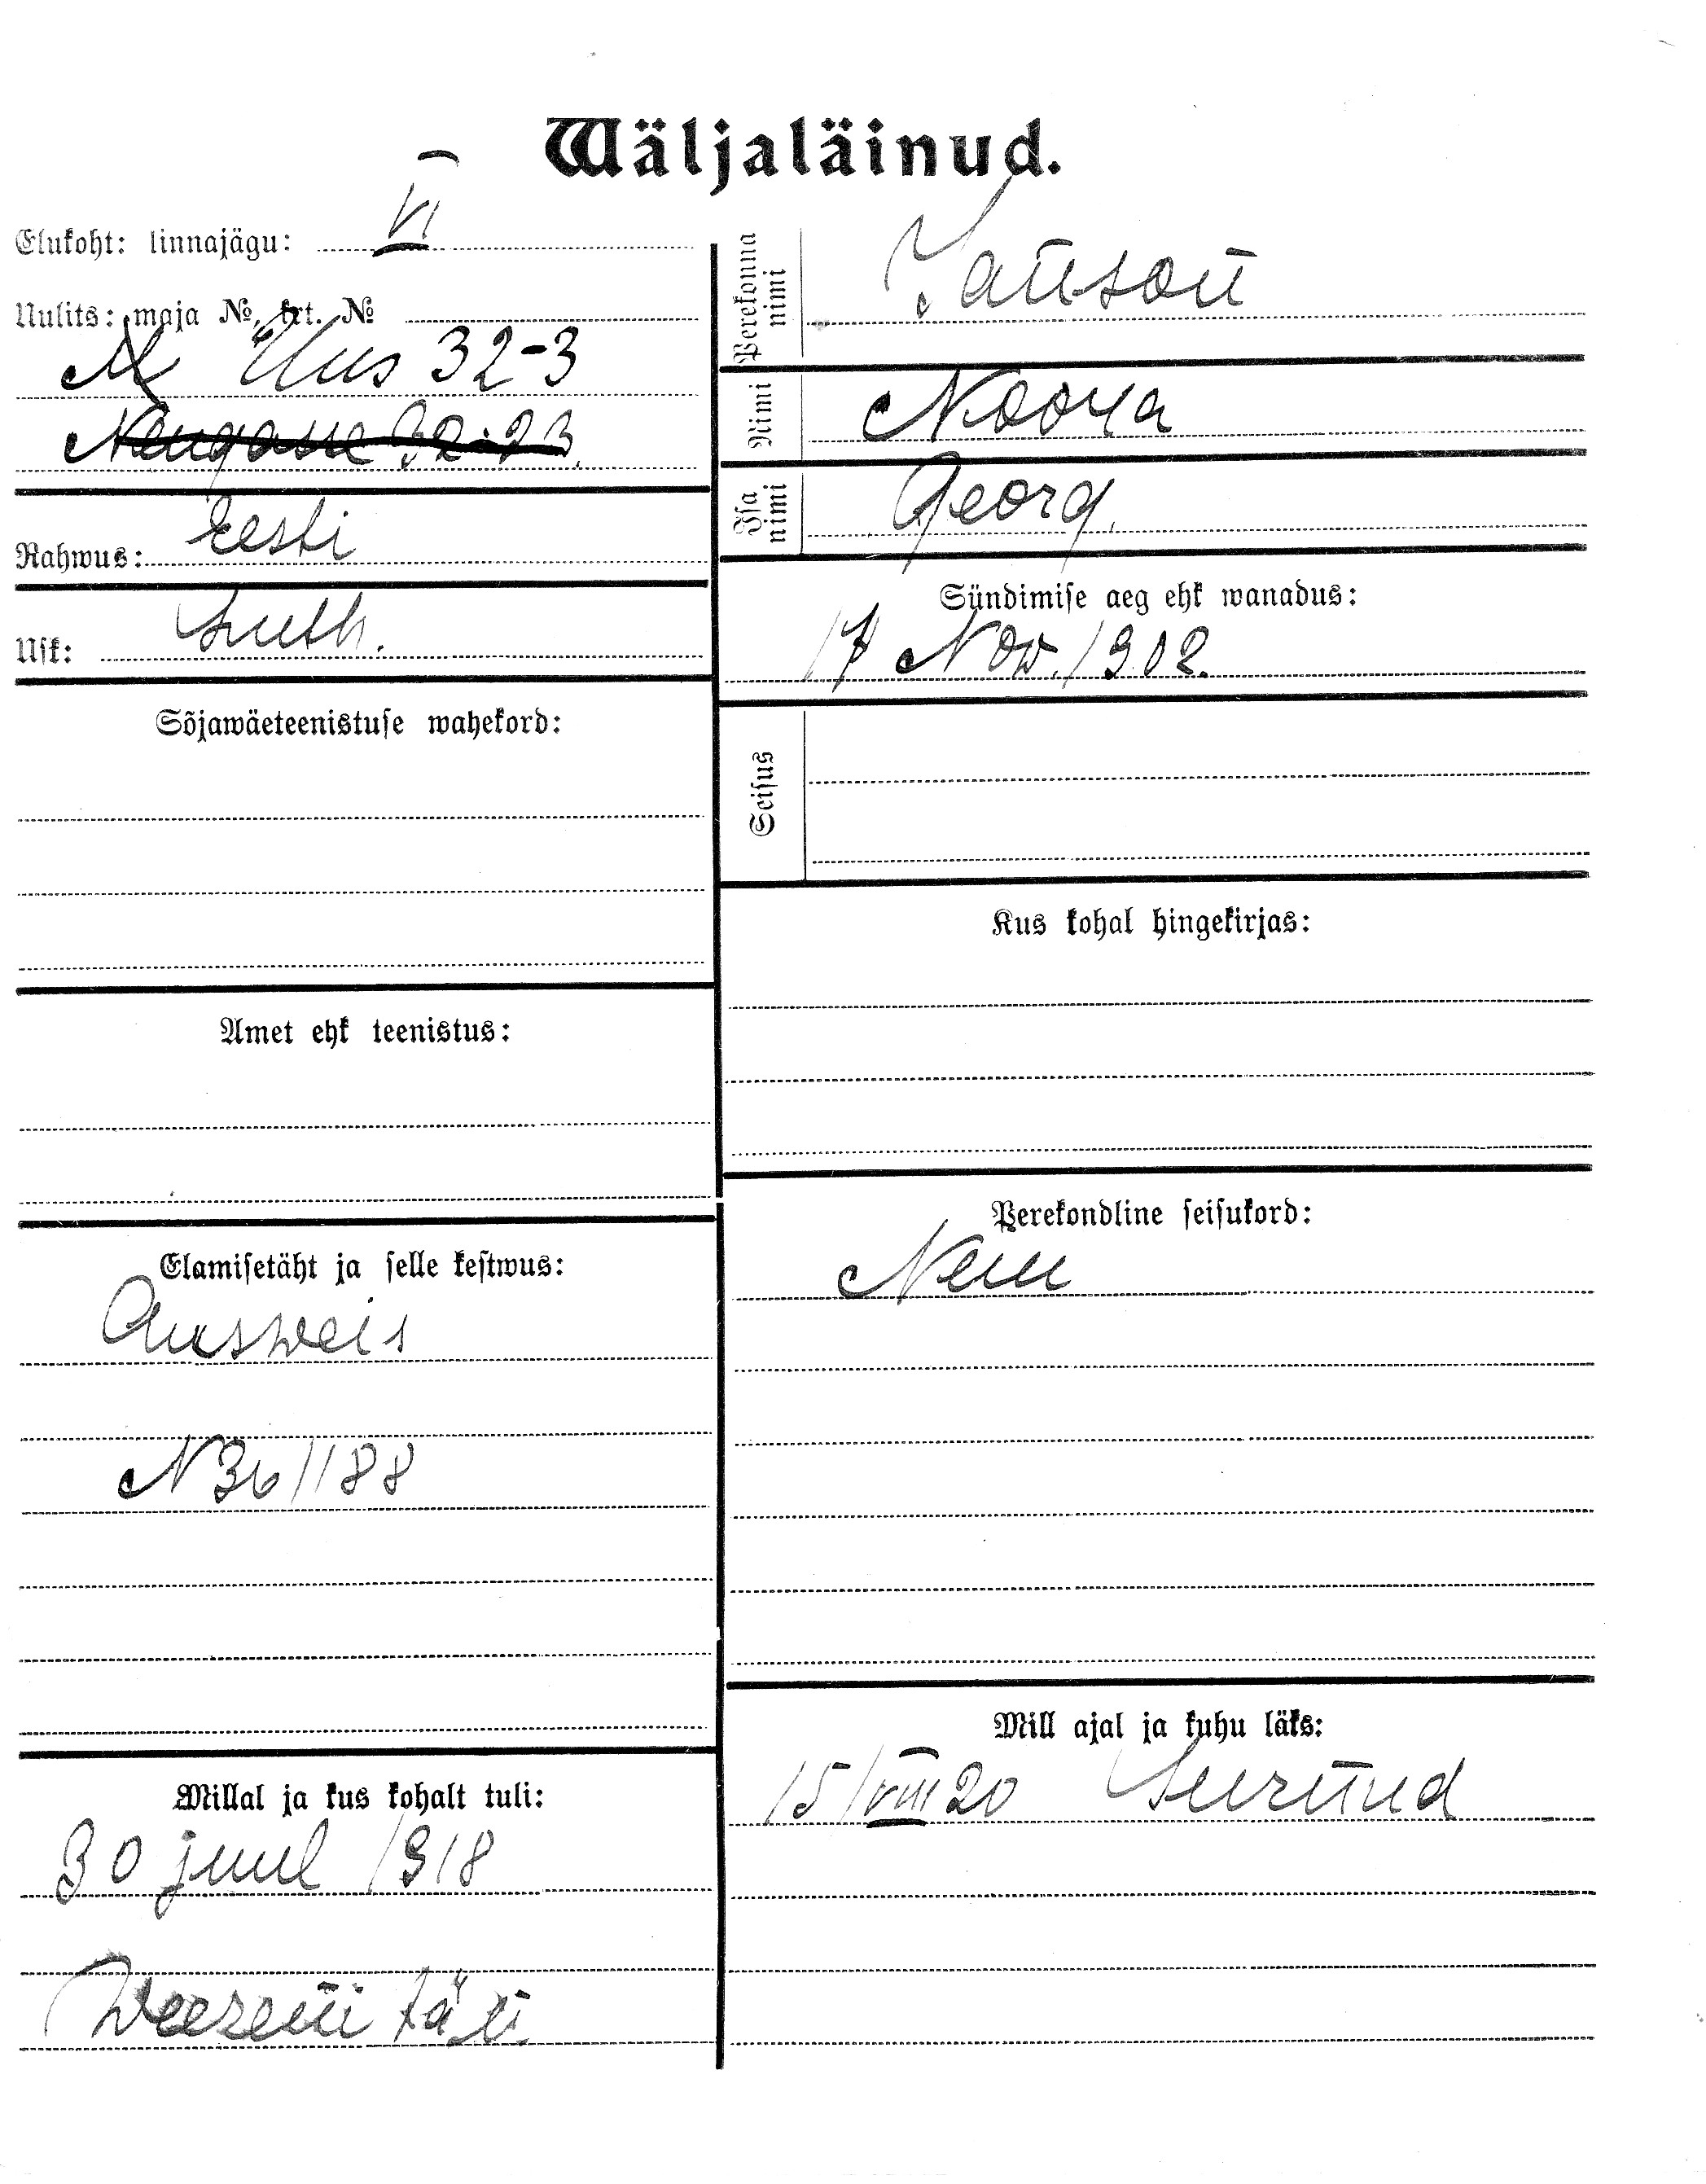 Wäljaläinud.
Elukoht: linnajägu: VI
Uulits: maja №, krt. №
Uus 32-3
Neugasse 32-23.
Rahwus: Eesti
Usk: Luth.
Sõjawäeteenistuse wahekord:
Amet ehk teenistus:
Elamisetäht ja selle kestwus:
Ausweis
N 361188
Millal ja kus kohalt tuli:
30 juul 1918
Perekonna nimi Janson
Nimi Noora
Isa nimi Georg.
Sündimise aeg ehk wanadus:
17 Now. 1902.
Seisus
Kus kohal hingekirjas:
Perekondline seisukord:
Neiu
Mill ajal ja kuhu läks:
15/VIII 20 Surnud